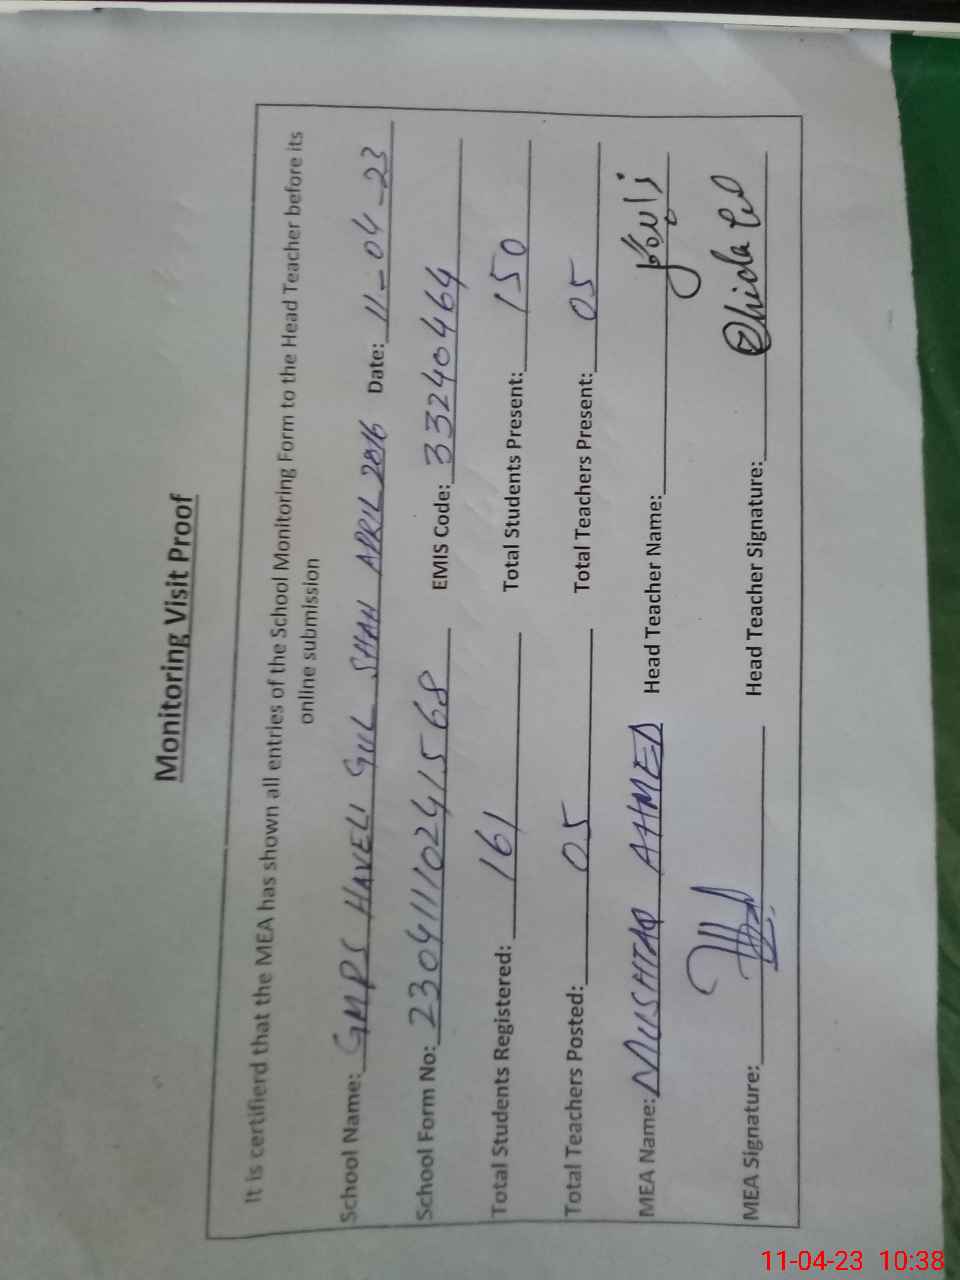 Monitoring Visit Proof
It is certifierd that the MEA has shown all entries of the School Monitoring Form to the Head Teacher before its
online submission
School Name: GMPS HAVELI GUL SHAH APRIL 2016 Date: 11-04-23
School Form No: 23041110241568 EMIS Code: 33240464
Total Students Registered: 161 Total Students Present: 150
Total Teachers Posted: 05 Total Teachers Present: 05
MEA Name: MUSHTAQ AHMED Head Teacher Name:
MEA Signature: Head Teacher Signature:
11-04-23 10:38